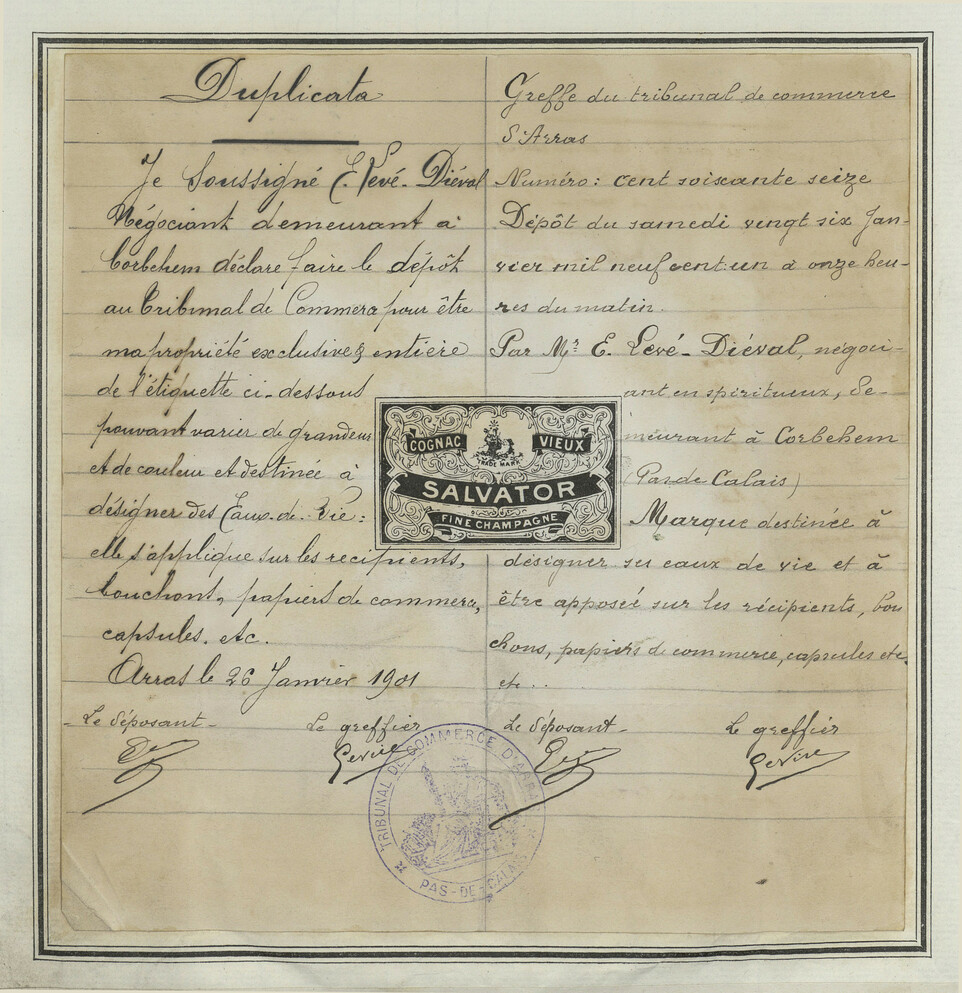 Duplicata
Je Soussigné E. Levé-Diéval
Négociant demeurant à
Corbehem déclare faire le dépôt
au Tribunal de Commerce pour être
ma propriété exclusive & entière
de l'étiquette ci-dessous
pouvant varier de grandeur
et de couleur et destinée à
désigner des Eaux-de-Vie:
elle s'applique sur les recipients,
bouchons, papiers de commerce,
capsules. etc.
Arras le 26 Janvier 1901
Le déposant
Le greffier
Greffe du tribunal de commerce
d'Arras
Numéro: cent soixante seize
Dépôt du samedi vingt six Jan-
vier mil neuf cent un à onze heu-
res du matin.
Par Mr E. Levé-Diéval, négoci-
ant en spiritueux, de-
meurant à Corbehem
(Pas de Calais)
Marque destinée à
désigner ses eaux de vie et à
être apposée sur les récipients, bou
chons, papiers de commerce, capsules etc.
etc..
Le déposant
Le greffier
COGNAC VIEUX
TRADE MARK
SALVATOR
FINE CHAMPAGNE
TRIBUNAL DE COMMERCE D'ARRAS
PAS-DE-CALAIS